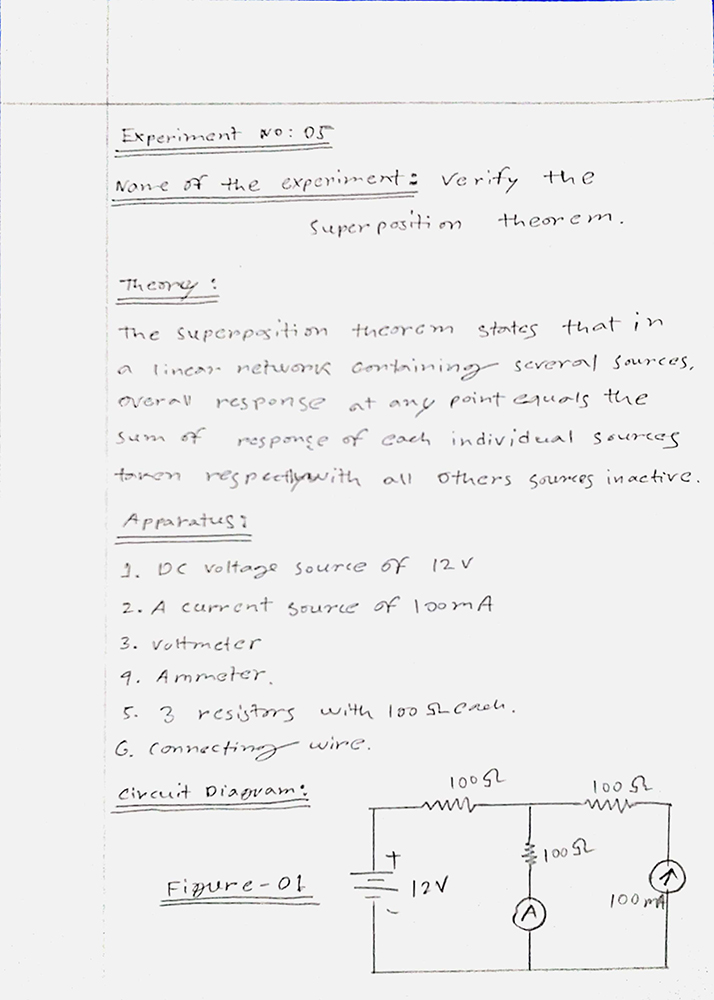 Experiment No: 05
Name of the experiment: Verify the
superposition theorem.
Theory:
The superposition theorem states that in
a linear network containing several sources,
overall response at any point equals the
sum of response of each individual sources
taken respectly with all others sources inactive.
Apparatus:
1. DC voltage source of 12V
2. A current source of 100mA
3. Voltmeter
4. Ammeter.
5. 3 resistors with 100Ω each.
6. Connecting wire.
Circuit Diagram:
100Ω 100Ω
100Ω
+
Figure-01 12V 100mA
-
A